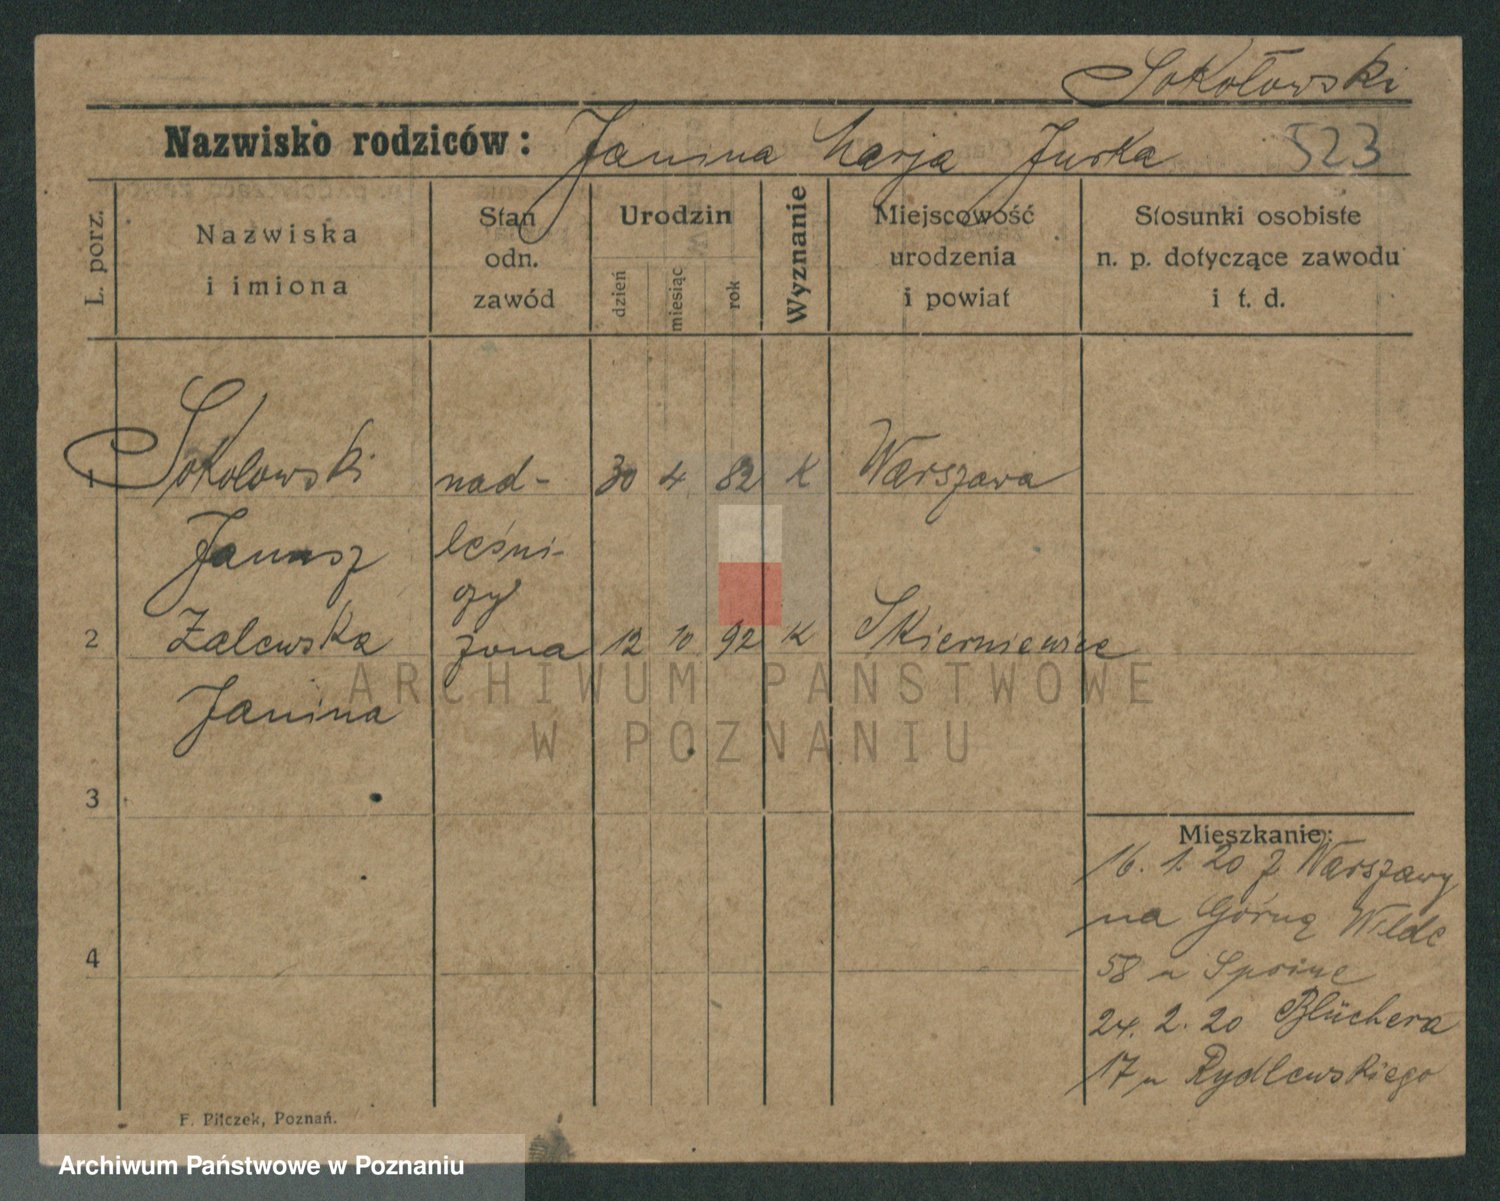 Sokołowski
Nazwisko rodziców: Janina Marja Jurka 523
L. porz.
Nazwiska
i imiona
Stan
odn.
zawód
Urodzin
dzień
miesiąc
rok
Wyznanie
Miejscowość
urodzenia
i powiat
Stosunki osobiste
n. p. dotyczące zawodu
i t. d.
1 Sokolowski nad- 30 4 82 K Warszawa
Janusz leśni-
czy
2 Zalewska żona 12 10 92 K Skierniewice
Janina
ARCHIWUM PAŃSTWOWE
W POZNANIU
3
4
Mieszkanie:
16. 1. 20 z Warszawy
na Górną Wilde
58 u
24. 2. 20 Blüchera
17 u Rydlewskiego
F. Pilczek, Poznań.
Archiwum Państwowe w Poznaniu